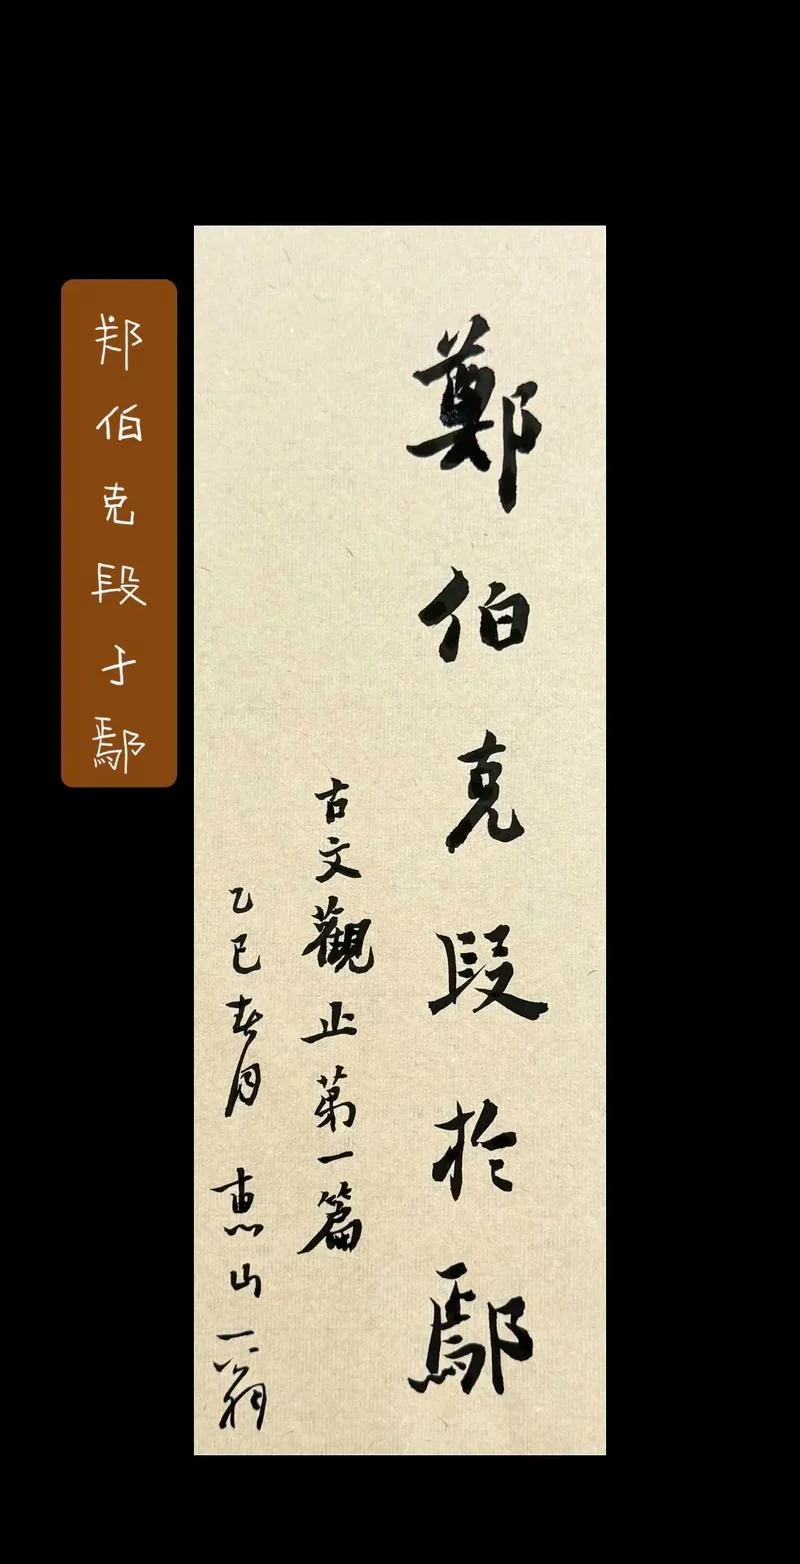 鄭伯克段於鄢
古文觀止第一篇
乙巳春月 惠山一翁
郑伯克段于鄢